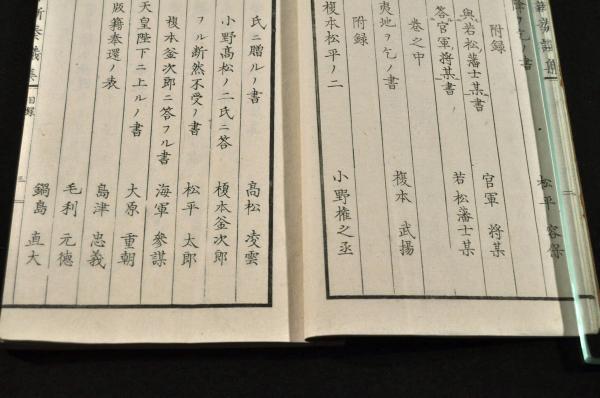 降ヲ乞フノ書 松平 容保
附録
與若松藩士某書 官軍 将某
答官軍将某書 若松藩士某
巻之中
夷地ヲ乞フノ書 榎本 武揚
附録
榎本松平ノ二 小野権之丞
氏ニ贈ルノ書 高松 凌雲
小野高松ノ二氏ニ答 榎本釜次郎
フル断然不受ノ書 松平 太郎
榎本釜次郎ニ答フル書 海軍 參謀
天皇陛下ニ上ルノ書 大原 重朝
版籍奉還ノ表 島津 忠義
毛利 元徳
鍋島 直大
目録 三